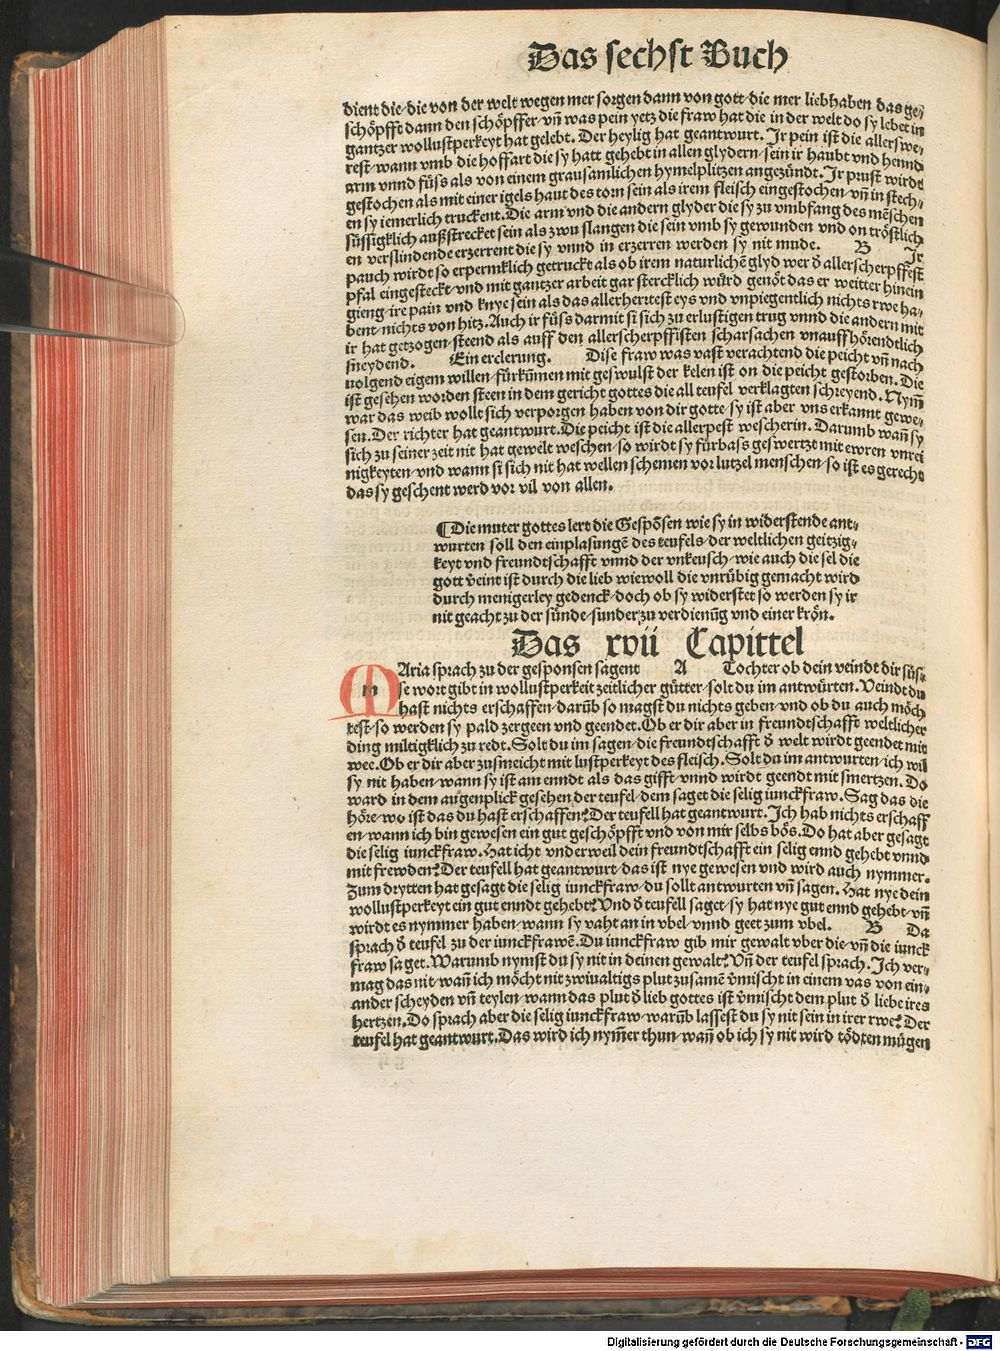 Das sechst Buch
dient die/die von der welt wegen mer sorgen dann von gott/die mer liebhaben das ge/
schöpfft dann den schöpffer/vn̄ was pein yetz die fraw hat die in der welt do sy lebet in
gantzer wollustperkeyt hat gelebt. Der heylig hat geantwurt. Ir pein ist die allerswe/
rest/wann vmb die hoffart die sy hatt gehebt in allen glydern/sein ir haubt vnd hennd
arm vnnd füss als von einem grausamlichen hymelplitzen angezündt. Ir prust wirdt
gestochen als mit einer igels haut des torn sein als irem fleisch eingestochen/vn̄ in stech/
en sy iemerlich truckent. Die arm vnd die andern glyder die sy zu vmbfang des mēschen
süssigklich außstrecket sein als zwu slangen die sein vmb sy gewunden vnd on tröstlich
en verslindende erzerrent die sy vnnd in erzerren werden sy nit mude. B Ir
pauch wirdt so erpermklich getruckt als ob irem naturlichē glyd wer d̄ allerscherpffest
pfal eingesteckt/vnd mit gantzer arbeit gar stercklich würd genöt das er weitter hinein
gieng/ire pain vnd knye sein als das allerhertest eys vnd vnpiegentlich nichts rwe ha/
bent/nichts von hitz. Auch ir füss darmit si sich zu erlustigen trug vnnd die andern mit
ir hat getzogen/steend als auff den allerscherpffisten scharsachen vnauffhörendtlich
sneydend. Ein erclerung. Dise fraw was vast verachtend die peicht vn̄ nach
uolgend eigem willen/fürkūmen mit geswulst der kelen ist on die peicht gestorben. Die
ist gesehen worden steen in dem gericht gottes die all teufel verklagten schreyend. Nym̄
war das weib wollt sich verporgen haben von dir gotte/sy ist aber vns erkannt gewe/
sen. Der richter hat geantwurt. Die peicht ist die allerpest wescherin. Darumb wan̄ sy
sich zu seiner zeit nit hat gewelt weschen/so wirdt sy fürbass geswertzt mit ewren vnrei
nigkeyten/vnd wann si sich nit hat wellen schemen vor lutzel menschen/so ist es gerecht
das sy geschent werd vor vil von allen.
¶Die muter gottes lert die Gespōsen wie sy in widerstende ant/
wurten soll den einplasungē des teufels/der weltlichen geitzig/
keyt vnd freundtschafft vnnd der vnkeusch/wie auch die sel die
gott v̄eint ist durch die lieb wiewoll die vnrübig gemacht wird
durch menigerley gedenck/doch ob sy widerstet so werden sy ir
nit geacht zu der sünde/sunder zu verdienūg vnd einer krön.
Das xvii Capittel
MAria sprach zu der gesponsen sagent A Tochter ob dein veindt dir süs/
se wort gibt in wollustperkeit zeitlicher gütter/solt du im antwürten. Veindt du
hast nichts erschaffen/darūb so magst du nichts geben/vnd ob du auch möch
test/so werden sy pald zergeen vnd geendet. Ob er dir aber in freundtschafft weltlicher
ding miltigklich zu redt. Solt du im sagen/die freundtschafft d̄ welt wirdt geendet mit
wee. Ob er dir aber zusmeicht mit lustperkeyt des fleisch. Solt du im antwurten/ich wil
sy nit haben/wann sy ist am enndt als das gifft/vnnd wirdt geendt mit smertzen. Do
ward in dem augenplick gesehen der teufel/dem saget die selig iunckfraw. Sag das die
höre/wo ist das du hast erschaffen? Der teufell hat geantwurt. Ich hab nichts erschaff
en/wann ich bin gewesen ein gut geschöpfft vnd von mir selbs bös. Do hat aber gesagt
die selig iunckfraw. Hat icht vnderweil dein freundtschafft ein selig ennd gehebt vnnd
mit frewden? Der teufell hat geantwurt/das ist nye gewesen vnd wird auch nymmer.
Zum drytten hat gesagt die selig iunckfraw/du sollt antwurten vn̄ sagen. Hat nye dein
wollustperkeyt ein gut enndt gehebt? Vnd d̄ teufell saget/sy hat nye gut ennd gehebt/vn̄
wirdt es nymmer haben/wann sy vaht an in vbel/vnnd geet zum vbel. B Da
sprach d̄ teufel zu der iunckfrawē. Du iunckfraw gib mir gewalt vber die/vn̄ die iunck
fraw saget. Warumb nymst du sy nit in deinen gewalt? Vn̄ der teufel sprach. Ich ver/
mag das nit/wan̄ ich möcht nit zwiualtigs plut zusamē v̄mischt in einem vas von ein/
ander scheyden vn̄ teylen/wann das plut d̄ lieb gottes ist v̄mischt dem plut d̄ liebe ires
hertzen. Do sprach aber die selig iunckfraw/warūb lassest du sy nit sein in irer rwe? Der
teufel hat geantwurt. Das wird ich nym̄er thun/wan̄ ob ich sy nit wird tödten mügen
Digitalisierung gefördert durch die Deutsche Forschungsgemeinschaft - DFG